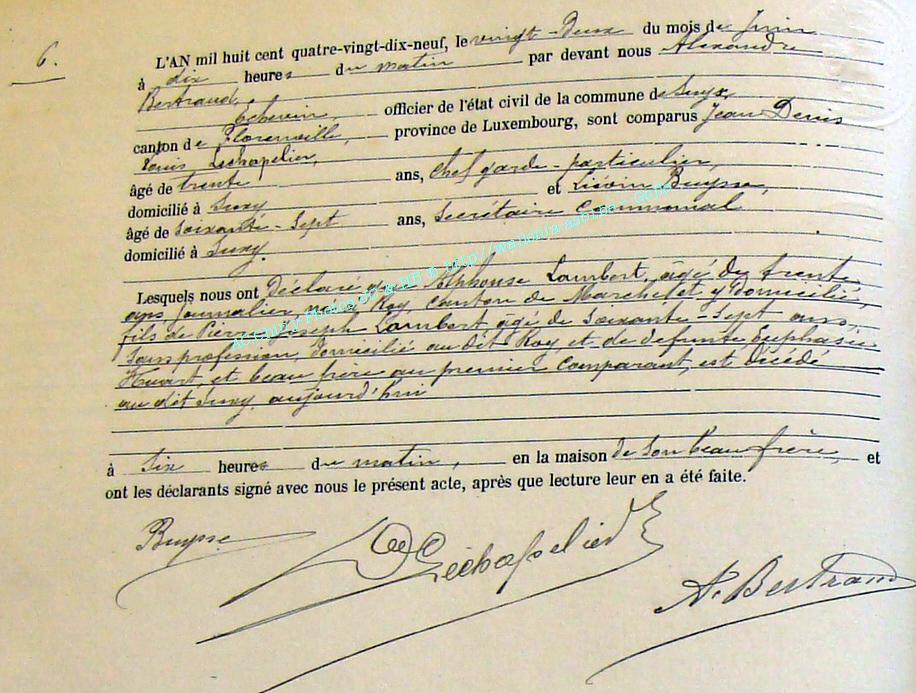 6.
L'AN mil huit cent quatre-vingt-dix-neuf, le vingt-Deux du mois de Juin
à dix heures du matin par devant nous Alexandre
Bertrand,
Echevin, officier de l'état civil de la commune de Suxy,
canton de Florenville, province de Luxembourg, sont comparus Jean Denis
Louis Lechapelier,
âgé de trente ans, Chef garde-particulier,
domicilié à Suxy et Liévin Buysse,
âgé de Soixante-Sept ans, Secrétaire Communal
domicilié à Suxy.
Lesquels nous ont Déclaré que Alphonse Lambert, âgé de trente
ans, journalier, né à Roy, Canton de Marche et y Domicilié,
fils de Pierre Joseph Lambert, âgé de Soixante-Sept ans,
Sans profession, Domicilié au dit Roy, et de defunte Euphasie
Huart, et beau frère au premier Comparant, est Décédé
au dit Suxy, aujourd'hui
à Six heures du matin, en la maison de Son beau frère, et
ont les déclarants signé avec nous le présent acte, après que lecture leur en a été faite.
Buysse Lechapelier
A. Bertrand